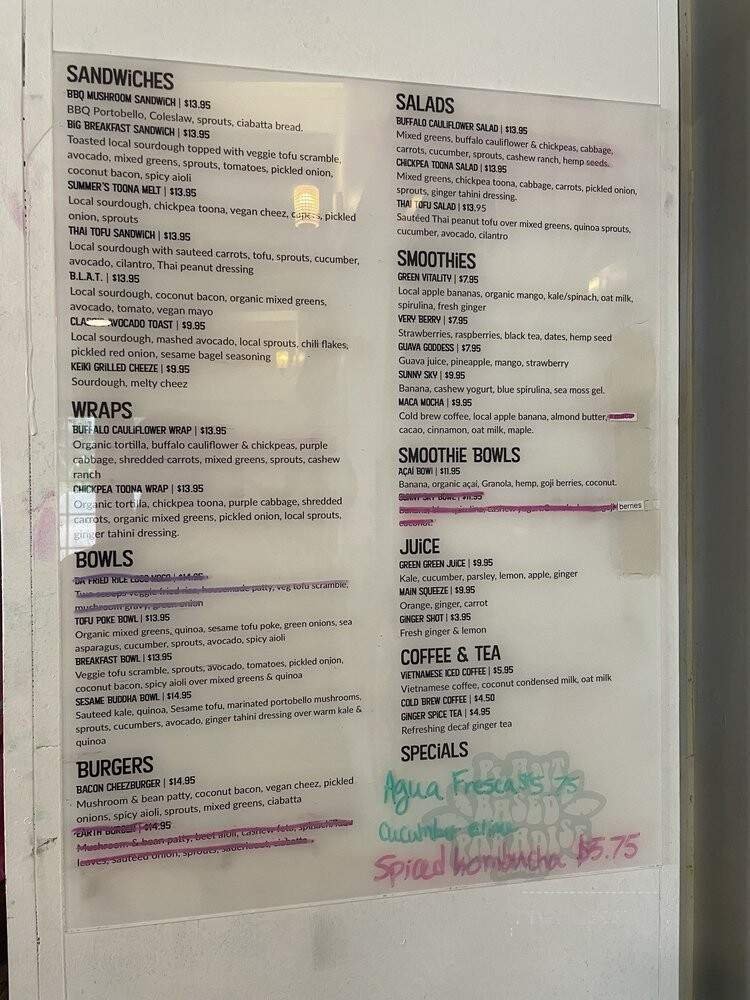 SANDWiCHES
BBQ MUSHROOM SANDWiCH | $13.95
BBQ Portobello, Coleslaw, sprouts, ciabatta bread.
BiG BREAKFAST SANDWiCH | $13.95
Toasted local sourdough topped with veggie tofu scramble,
avocado, mixed greens, sprouts, tomatoes, pickled onion,
coconut bacon, spicy aioli
SUMMER'S TOONA MELT | $13.95
Local sourdough, chickpea toona, vegan cheez, pickled
onion, sprouts
THAi TOFU SANDWiCH | $13.95
Local sourdough with sauteed carrots, tofu, sprouts, cucumber,
avocado, cilantro, Thai peanut dressing
B.L.A.T. | $13.95
Local sourdough, coconut bacon, organic mixed greens,
avocado, tomato, vegan mayo
AVOCADO TOAST | $9.95
Local sourdough, mashed avocado, local sprouts, chili flakes,
pickled red onion, sesame bagel seasoning
KEiKi GRiLLED CHEEZE | $9.95
Sourdough, melty cheez
WRAPS
BUFFALO CAULiFLOWER WRAP | $13.95
Organic tortilla, buffalo cauliflower & chickpeas, purple
cabbage, shredded carrots, mixed greens, sprouts, cashew
ranch
CHiCKPEA TOONA WRAP | $13.95
Organic tortilla, chickpea toona, purple cabbage, shredded
carrots, organic mixed greens, pickled onion, local sprouts,
ginger tahini dressing.
BOWLS
DA FRiED RiCE LOCO MOCO | $14.95
Two scoops veggie fried rice, housemade patty, veg tofu scramble,
mushroom gravy, green onion
TOFU POKE BOWL | $13.95
Organic mixed greens, quinoa, sesame tofu poke, green onions, sea
asparagus, cucumber, sprouts, avocado, spicy aioli
BREAKFAST BOWL | $13.95
Veggie tofu scramble, sprouts, avocado, tomatoes, pickled onion,
coconut bacon, spicy aioli over mixed greens & quinoa
SESAME BUDDHA BOWL | $14.95
Sauteed kale, quinoa, Sesame tofu, marinated portobello mushrooms,
sprouts, cucumbers, avocado, ginger tahini dressing over warm kale &
quinoa
BURGERS
BACON CHEEZBURGER | $14.95
Mushroom & bean patty, coconut bacon, vegan cheez, pickled
onions, spicy aioli, sprouts, mixed greens, ciabatta
EARTH BURGER | $14.95
Mushroom & bean patty, beet aioli, cashew feta,
leaves, sautéed onion, sprouts, ciabatta
SALADS
BUFFALO CAULiFLOWER SALAD | $13.95
Mixed greens, buffalo cauliflower & chickpeas, cabbage,
carrots, cucumber, sprouts, cashew ranch, hemp seeds.
CHiCKPEA TOONA SALAD | $13.95
Mixed greens, chickpea toona, cabbage, carrots, pickled onion,
sprouts, ginger tahini dressing.
THAi TOFU SALAD | $13.95
Sautéed Thai peanut tofu over mixed greens, quinoa sprouts,
cucumber, avocado, cilantro
SMOOTHiES
GREEN ViTALiTY | $7.95
Local apple bananas, organic mango, kale/spinach, oat milk,
spirulina, fresh ginger
VERY BERRY | $7.95
Strawberries, raspberries, black tea, dates, hemp seed
GUAVA GODDESS | $7.95
Guava juice, pineapple, mango, strawberry
SUNNY SKY | $9.95
Banana, cashew yogurt, blue spirulina, sea moss gel.
MACA MOCHA | $9.95
Cold brew coffee, local apple banana, almond butter,
cacao, cinnamon, oat milk, maple.
SMOOTHiE BOWLS
AÇAi BOWl | $11.95
Banana, organic açai, Granola, hemp, goji berries, coconut.
SUNNY SKY BOWL | $11.95
Banana, blue spirulina, cashew yogurt, Granola, hemp, goji berries
coconut.
JUiCE
GREEN GREEN JUiCE | $9.95
Kale, cucumber, parsley, lemon, apple, ginger
MAiN SQUEEZE | $9.95
Orange, ginger, carrot
GiNGER SHOT | $3.95
Fresh ginger & lemon
COFFEE & TEA
ViETNAMESE iCED COFFEE | $5.95
Vietnamese coffee, coconut condensed milk, oat milk
COLD BREW COFFEE | $4.50
GiNGER SPiCE TEA | $4.95
Refreshing decaf ginger tea
SPECiALS
PLANT
BASED
PARADISE
Agua Fresca $5.75
Cucumber
Spiced Kombucha $5.75